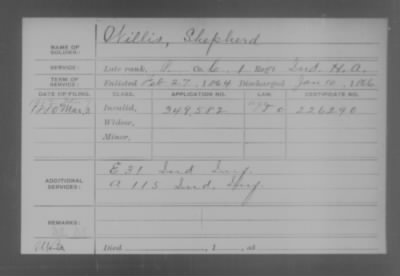 NAME OF SOLDIER: Willis, Shepherd
SERVICE: Late rank, P. Co. C, 1 Reg't Ind. H. A.
TERM OF SERVICE: Enlisted Feb 27, 1864 Discharged Jan 10, 1866
DATE OF FILING. CLASS. APPLICATION NO. LAW. CERTIFICATE NO.
1880 Mar, 2 Invalid, 349,582 226290
Widow,
Minor,
ADDITIONAL SERVICES:
E 31 Ind Inf.
A 115 Ind. Inf.
REMARKS:
Died , 1 , at